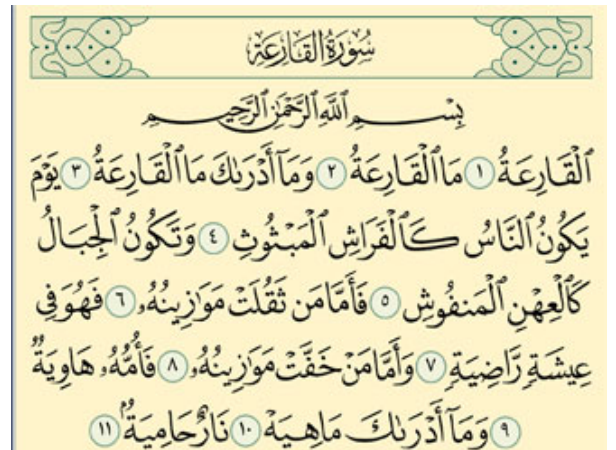 سُورَةُ القَارِعَةِ
بِسْمِ اللَّهِ الرَّحْمَٰنِ الرَّحِيمِ
ٱلْقَارِعَةُ ١ مَا ٱلْقَارِعَةُ ٢ وَمَآ أَدْرَىٰكَ مَا ٱلْقَارِعَةُ ٣ يَوْمَ
يَكُونُ ٱلنَّاسُ كَٱلْفَرَاشِ ٱلْمَبْثُوثِ ٤ وَتَكُونُ ٱلْجِبَالُ
كَٱلْعِهْنِ ٱلْمَنفُوشِ ٥ فَأَمَّا مَن ثَقُلَتْ مَوَٰزِينُهُۥ ٦ فَهُوَ فِى
عِيشَةٍ رَّاضِيَةٍ ٧ وَأَمَّا مَنْ خَفَّتْ مَوَٰزِينُهُۥ ٨ فَأُمُّهُۥ هَاوِيَةٌ
٩ وَمَآ أَدْرَىٰكَ مَا هِيَهْ ١٠ نَارٌ حَامِيَةٌۢ ١١